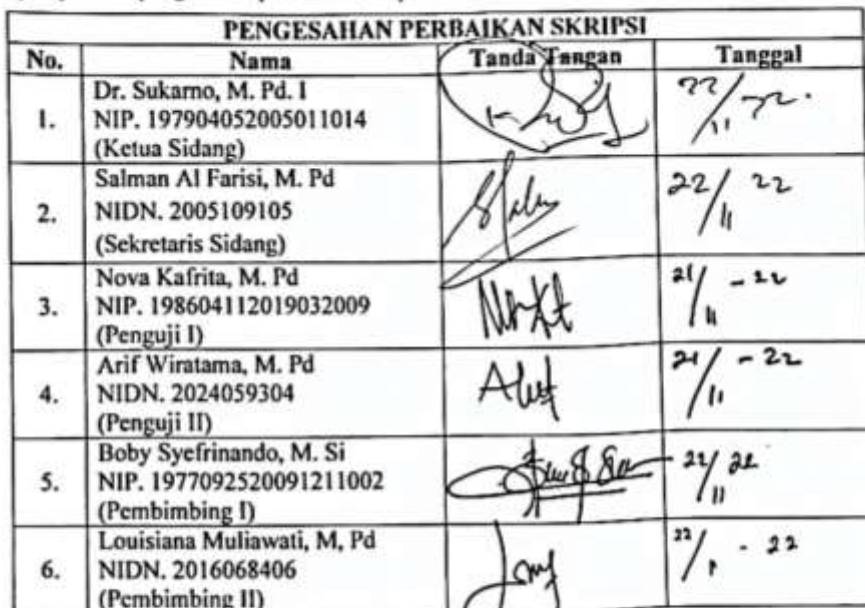 PENGESAHAN PERBAIKAN SKRIPSI
No. Nama Tanda Tangan Tanggal
1. Dr. Sukarno, M. Pd. I
NIP. 197904052005011014
(Ketua Sidang)
22/11 22.
2. Salman Al Farisi, M. Pd
NIDN. 2005109105
(Sekretaris Sidang)
22/11 22
3. Nova Kafrita, M. Pd
NIP. 198604112019032009
(Penguji I)
21/11 - 22
4. Arif Wiratama, M. Pd
NIDN. 2024059304
(Penguji II)
21/11 - 22
5. Boby Syefrinando, M. Si
NIP. 1977092520091211002
(Pembimbing I)
22/11 22
6. Louisiana Muliawati, M, Pd
NIDN. 2016068406
(Pembimbing II)
- 22